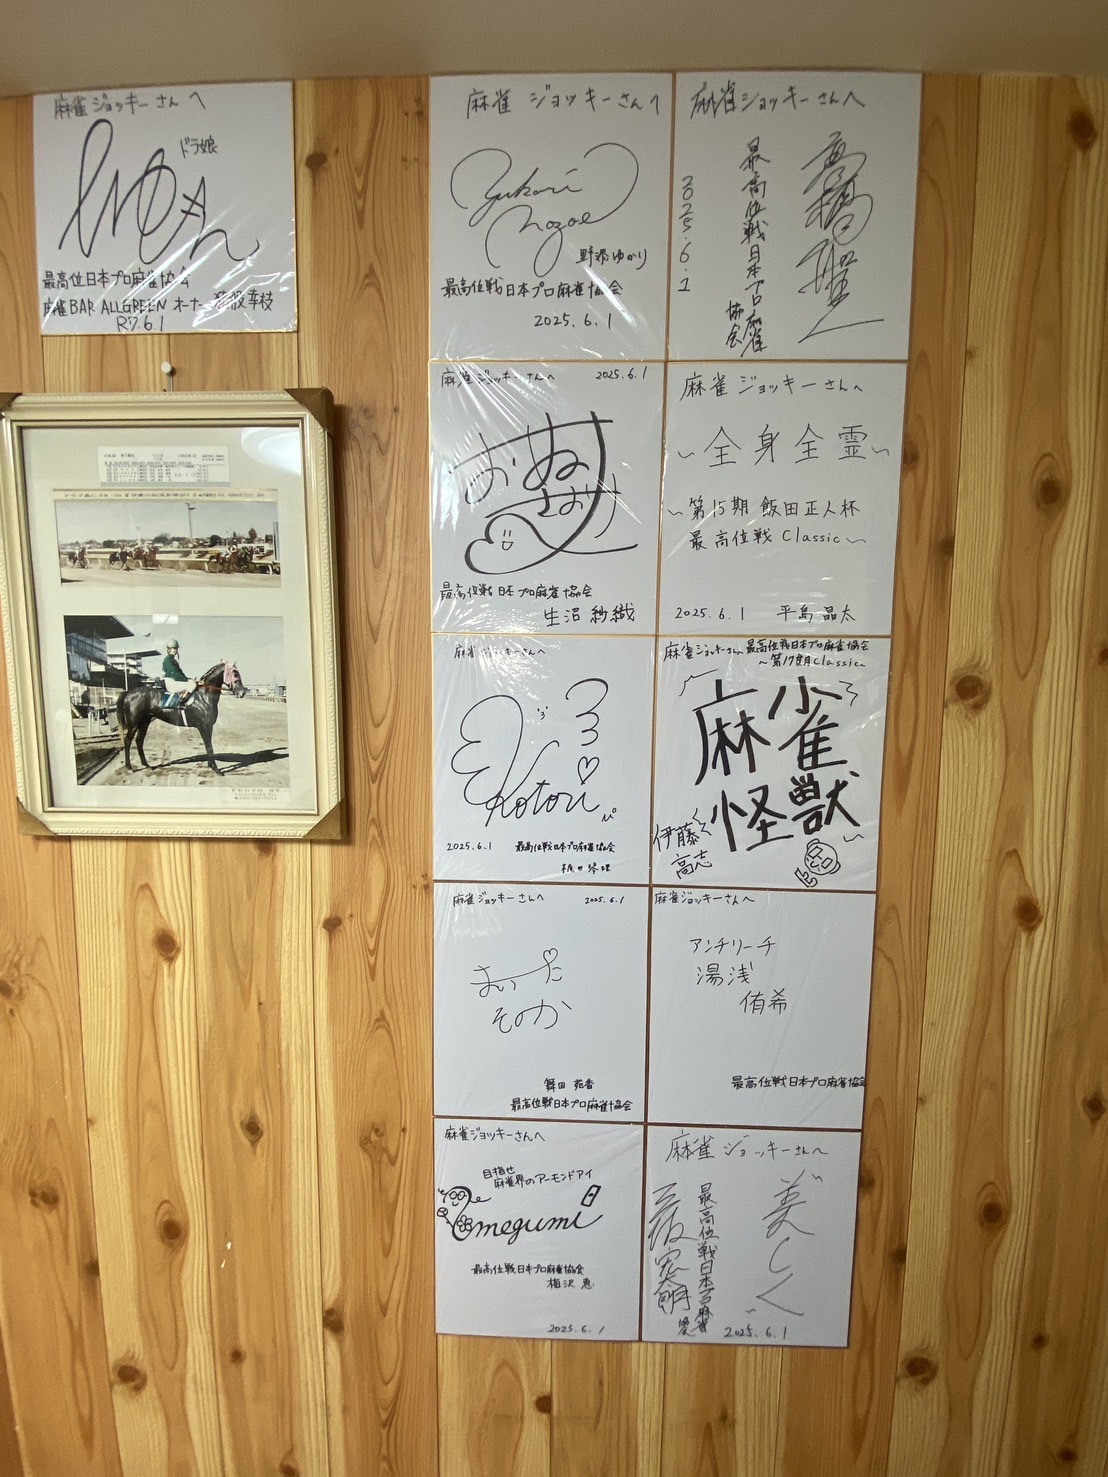 麻雀 ジョッキーさん へ
ドラ娘
最高位日本プロ麻雀協会
麻雀BAR ALLGREEN オーナー 猿飯幸枝
R7.6.1
麻雀 ジョッキーさんへ
Yukari
Nozoe
野添ゆかり
最高位戦日本プロ麻雀協会
2025.6.1
麻雀ジョッキーさんへ
最高位戦日本プロ麻雀
協会
2025.6.1
麻雀ジョッキーさんへ 2025.6.1
おぬま
さおり
最高位戦日本プロ麻雀協会
生沼 紗織
麻雀 ジョッキーさんへ
〜全身全霊〜
〜第15期 飯田正人杯
最高位戦 Classic〜
2025.6.1 平島 晶太
麻雀ジョッキーさんへ
Kotori
2025.6.1 最高位戦日本プロ麻雀協会
梶田琴理
麻雀ジョッキーさんへ 最高位戦日本プロ麻雀協会
〜第17期Classic〜
麻雀
怪獣
伊藤
高志
麻雀ジョッキーさんへ 2025.6.1
まいた
そのか
舞田 苑香
最高位戦日本プロ麻雀協会
麻雀ジョッキーさんへ
アンチリーチ
湯浅
侑希
最高位戦日本プロ麻雀協会
麻雀ジョッキーさんへ
目指せ
麻雀界のアーモンドアイ
megumi
最高位戦日本プロ麻雀協会
梅沢 恵
2025.6.1
麻雀 ジョッキーさんへ
美しく
最高位戦日本プロ麻雀
2025.6.1
PHOTO BY